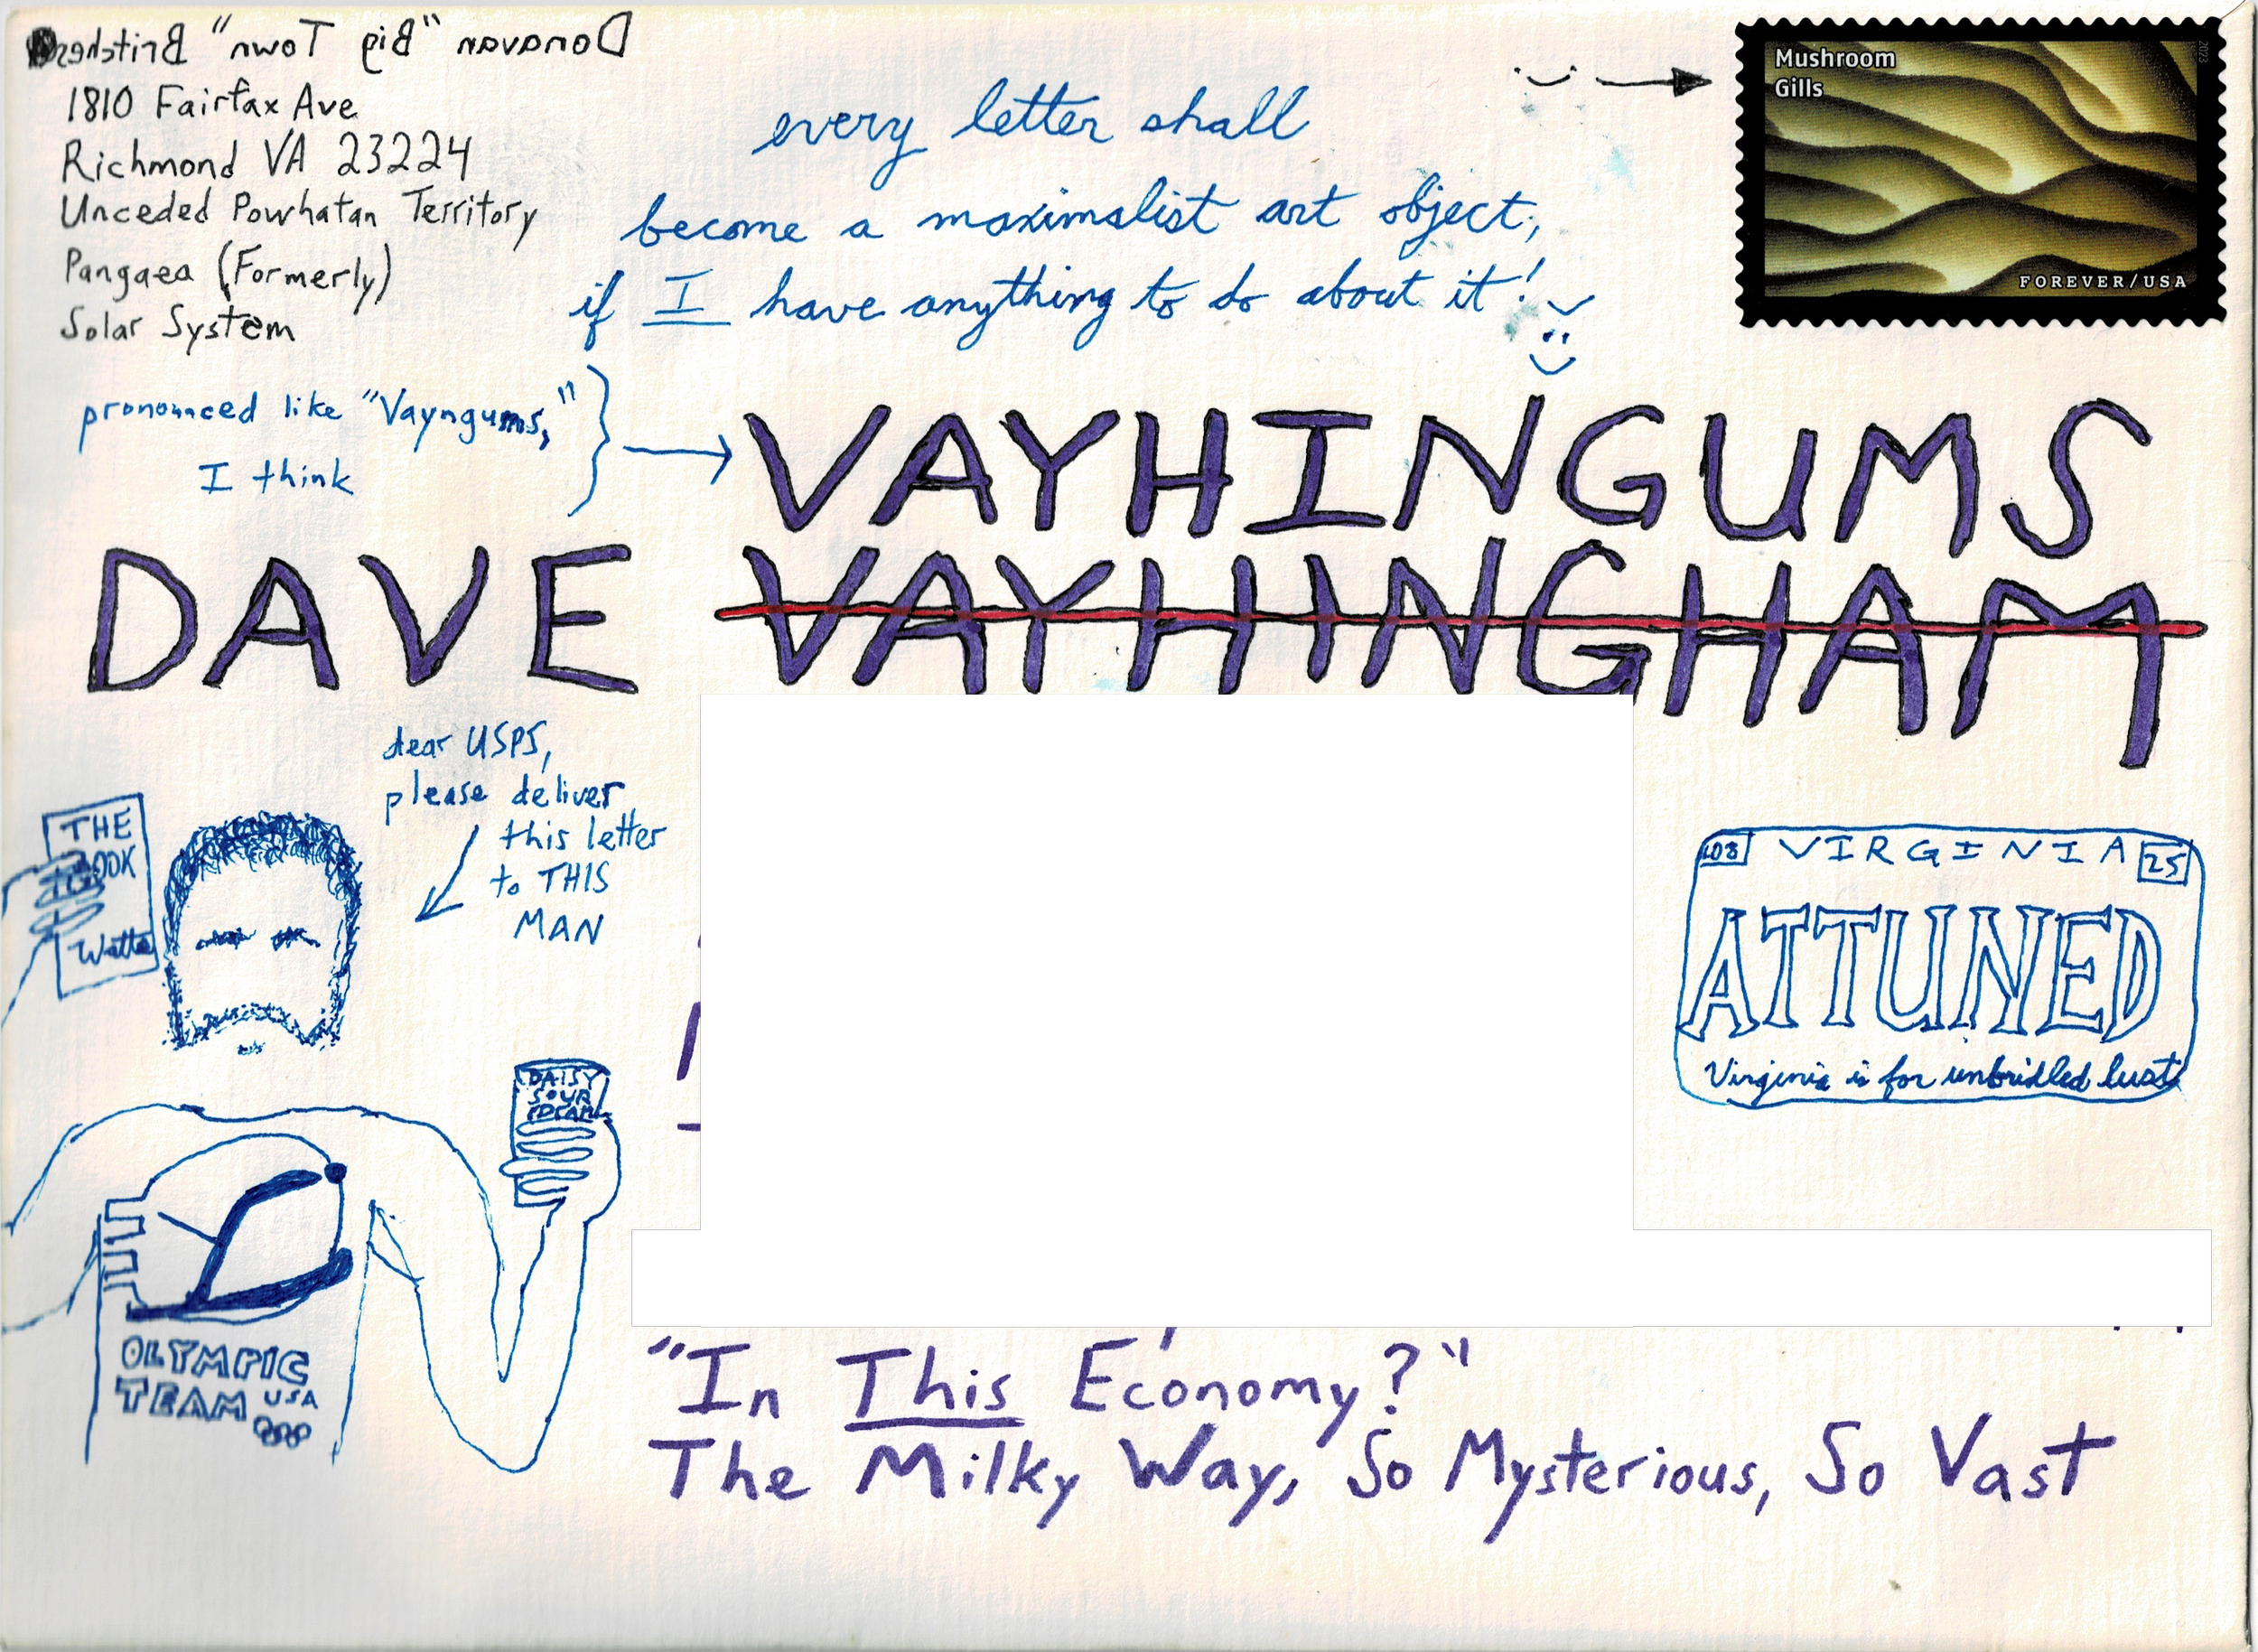 Donavan "Big Town"
1810 Fairfax Ave
Richmond VA 23224
Unceded Powhatan Territory
Pangaea (Formerly)
Solar System
every letter shall
become a maximalist art object,
if I have anything to do about it!
Mushroom
Gills
2023
FOREVER/USA
pronounced like "Vayngums,"
I think
VAYHINGUMS
DAVE VAYHINGHAM
dear USPS,
please deliver
this letter
to THIS
MAN
THE
BOOK
Watts
VIRGINIA 25
ATTUNED
Virginia is for unbridled lust
DAISY
SOUR
CREAM
OLYMPIC
TEAM USA
"In This Economy?"
The Milky Way, So Mysterious, So Vast